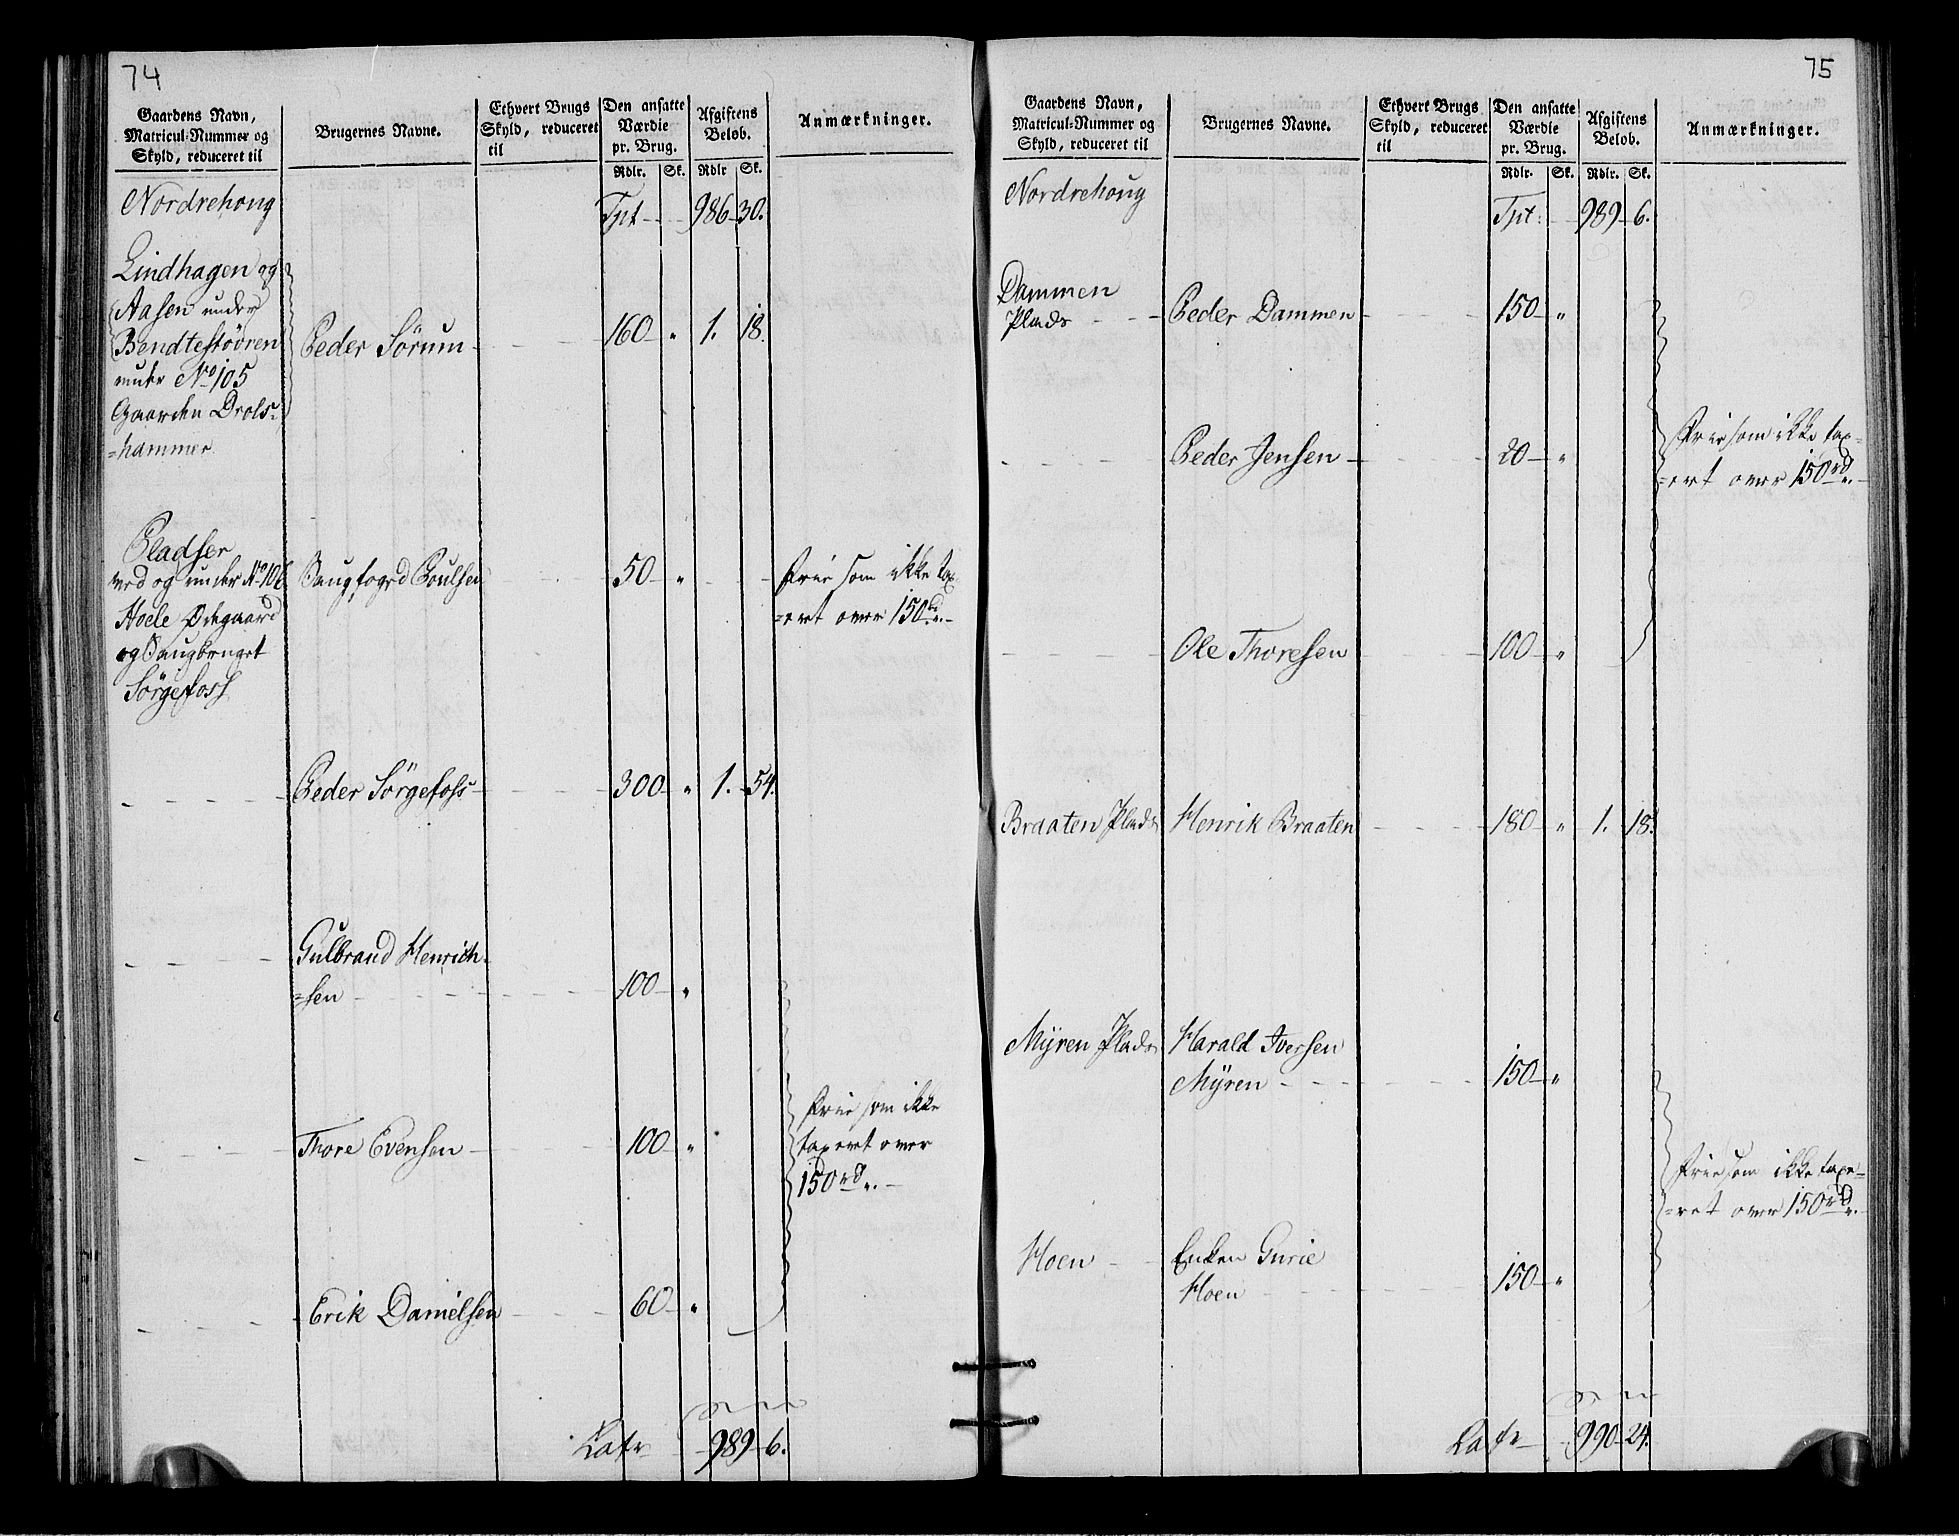 74
Gaardens Navn, Matricul-Nummer og Skyld, reduceret til
Brugernes Navne.
Ethvert Brugs Skyld, reduceret til
Den ansatte Værdie pr. Brug.
Afgiftens Beløb.
Anmærkninger.
Rdlr. Sk. Rdlr Sk.
Nordrehoug Tpt 986 30.
Lindhagen og
Aasen under
Bendtestøören
under No 105
Gaarden Drols-
=hammer
Peder Sörum 160 " 1. 18.
Pladser
ved og under No 106
Hoele Ødegaard
og Saugbruget
Sörgefoss
Saugfogd Poulsen 50 "
frie som ikke tax
=ert over 150rd. -
Peder Sörgefoss 300 " 1. 54.
Gulbrand Henrich-
=sen 100 "
Thore Evensen 100 "
frie som ikke
taxert over
150rd. -
Erik Danielsen 60 "
Lat 989 6.
75
Gaardens Navn, Matricul-Nummer og Skyld, reduceret til
Brugernes Navne.
Ethvert Brugs Skyld, reduceret til
Den ansatte Værdie pr. Brug.
Afgiftens Beløb.
Anmærkninger.
Rdlr. Sk. Rdlr. Sk.
Nordrehoug Tpt. 989 6.
Dammen
Plads Peder Dammen 150 "
Peder Jensen 20 "
frie som ikke tax-
=ert over 150rd. -
Ole Thoresen 100 "
Braaten Plads Henrik Braaten 180 " 1. 18.
Myren Plads Harald Iversen
Myren 150 "
frie som ikke taxe=
=ret over 150rd. -
Hoen Enken Gurie
Hoen 150 "
Lat 990 24.